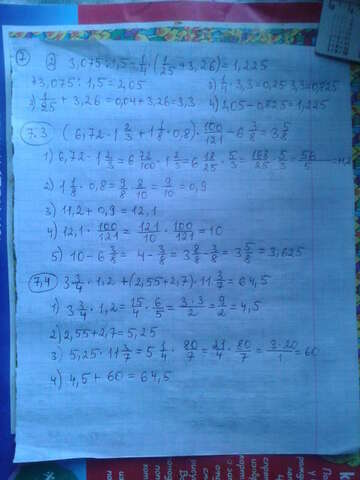 7) 2) 3,075 : 1,5 - 1/4 · (1/25 + 3,26) = 1,225
+3,075 : 1,5 = 2,05   3) 1/4 · 3,3 = 0,25 · 3,3 = 0,825
2) 1/25 + 3,26 = 0,04 + 3,26 = 3,3   4) 2,05 - 0,825 = 1,225
7.3 (6,72 · 1 2/3 + 1 1/8 · 0,8) · 100/121 - 6 3/8 = 3 5/8
1) 6,72 · 1 2/3 = 6 72/100 · 1 2/3 = 6 18/25 · 5/3 = 168/25 · 5/3 = 56/5 = 11,2
2) 1 1/8 · 0,8 = 9/8 · 8/10 = 9/10 = 0,9
3) 11,2 + 0,9 = 12,1
4) 12,1 · 100/121 = 121/10 · 100/121 = 10
5) 10 - 6 3/8 = 4 - 3/8 = 3 8/8 - 3/8 = 3 5/8 = 3,625
7,4 3 3/4 · 1,2 + (2,55 + 2,7) · 11 3/7 = 64,5
1) 3 3/4 · 1,2 = 15/4 · 6/5 = 3·3/2 = 9/2 = 4,5
2) 2,55 + 2,7 = 5,25
3) 5,25 · 11 3/7 = 5 1/4 · 80/7 = 21/4 · 80/7 = 3·20/1 = 60
4) 4,5 + 60 = 64,5